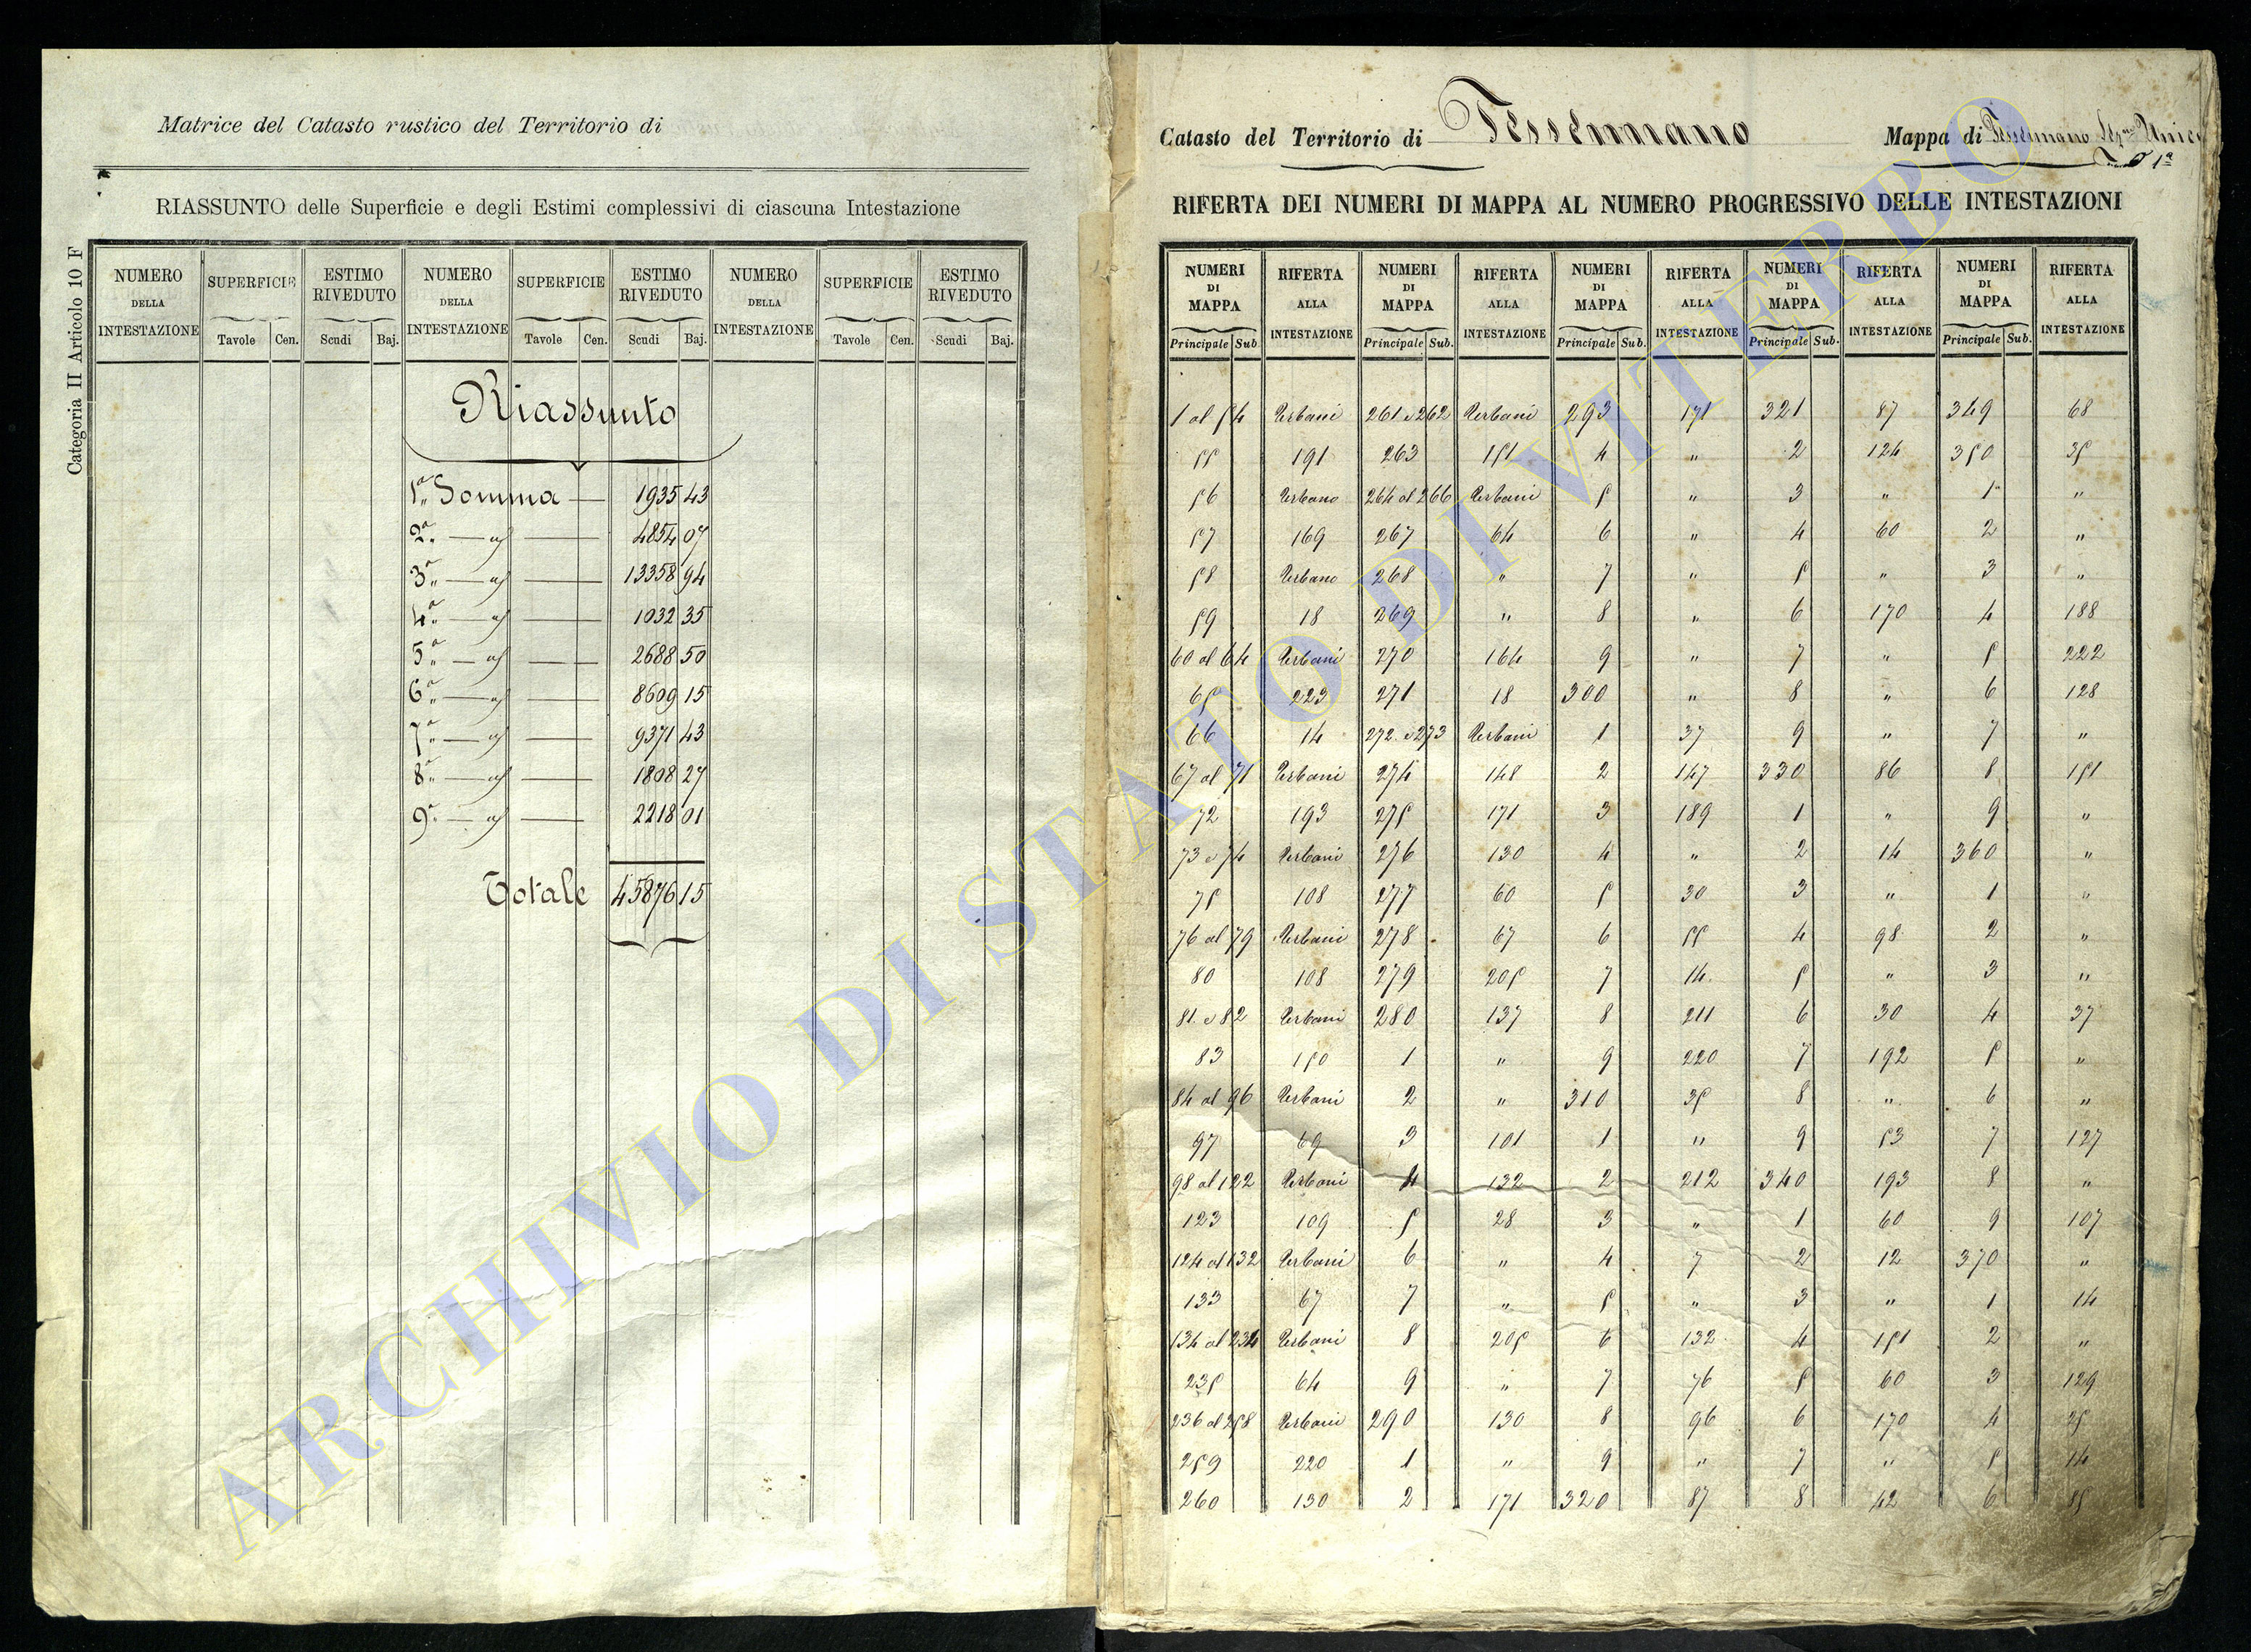 Matrice del Catasto rustico del Territorio di
RIASSUNTO delle Superficie e degli Estimi complessivi di ciascuna Intestazione
Categoria II Articolo 10 F
NUMERO DELLA INTESTAZIONE SUPERFICIE ESTIMO RIVEDUTO NUMERO DELLA INTESTAZIONE SUPERFICIE ESTIMO RIVEDUTO NUMERO DELLA INTESTAZIONE SUPERFICIE ESTIMO RIVEDUTO
Tavole Cen. Scudi Baj. Tavole Cen. Scudi Baj. Tavole Cen. Scudi Baj.
Riassunto
1ª Somma — 1935 43
2ª — — 4854 07
3ª — — 13358 94
4ª — — 1032 35
5ª — — 2688 50
6ª — — 8609 15
7ª — — 9371 43
8ª — — 1808 27
9ª — — 2218 01
Totale 45876 15
Catasto del Territorio di Tessennano Mappa di Tessennano Sezne Unica
1ª
RIFERTA DEI NUMERI DI MAPPA AL NUMERO PROGRESSIVO DELLE INTESTAZIONI
NUMERI DI MAPPA RIFERTA ALLA INTESTAZIONE NUMERI DI MAPPA RIFERTA ALLA INTESTAZIONE NUMERI DI MAPPA RIFERTA ALLA INTESTAZIONE NUMERI DI MAPPA RIFERTA ALLA INTESTAZIONE NUMERI DI MAPPA RIFERTA ALLA INTESTAZIONE
Principale Sub. Principale Sub. Principale Sub. Principale Sub. Principale Sub.
1 al 54 Urbani 261 e 262 Urbani 293 171 321 87 349 68
55 191 263 151 4 " 2 124 350 35
56 Urbano 264 al 266 Urbani 5 " 3 " 1 "
57 169 267 64 6 " 4 60 2 "
58 Urbano 268 " 7 " 5 " 3 "
59 18 269 " 8 " 6 170 4 188
60 al 64 Urbani 270 164 9 " 7 " 5 222
65 223 271 18 300 " 8 " 6 128
66 14 272 e 273 Urbani 1 37 9 " 7 "
67 al 71 Urbani 274 148 2 147 330 86 8 151
72 193 275 171 3 189 1 " 9 "
73 e 74 Urbani 276 130 4 " 2 14 360 "
75 108 277 60 5 30 3 " 1 "
76 al 79 Urbani 278 67 6 55 4 98 2 "
80 108 279 205 7 14 5 " 3 "
81 e 82 Urbani 280 137 8 211 6 30 4 37
83 150 1 " 9 220 7 192 5 "
84 al 96 Urbani 2 " 310 35 8 " 6 "
97 69 3 101 1 " 9 53 7 127
98 al 122 Urbani 4 132 2 212 340 193 8 "
123 109 5 28 3 " 1 60 9 107
124 al 132 Urbani 6 " 4 7 2 12 370 "
133 67 7 " 5 " 3 " 1 14
134 al 234 Urbani 8 205 6 132 4 151 2 "
235 64 9 " 7 76 5 60 3 129
236 al 258 Urbani 290 130 8 96 6 170 4 25
259 220 1 " 9 " 7 " 5 14
260 130 2 171 320 87 8 42 6 85
ARCHIVIO DI STATO DI VITERBO